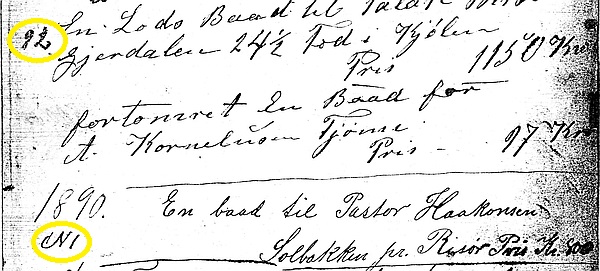 En Lods Baad til
22 Gjerdalen 24½ Fod i Kjölen
Pris 1150 Kr
fortomret En Baad for
A. Korneliusen Tjömö
Pris - 97 Kr
1890. En baad til Pastor Haakonsen
N1 Solbakken pr. Risör Pris Kr. 800